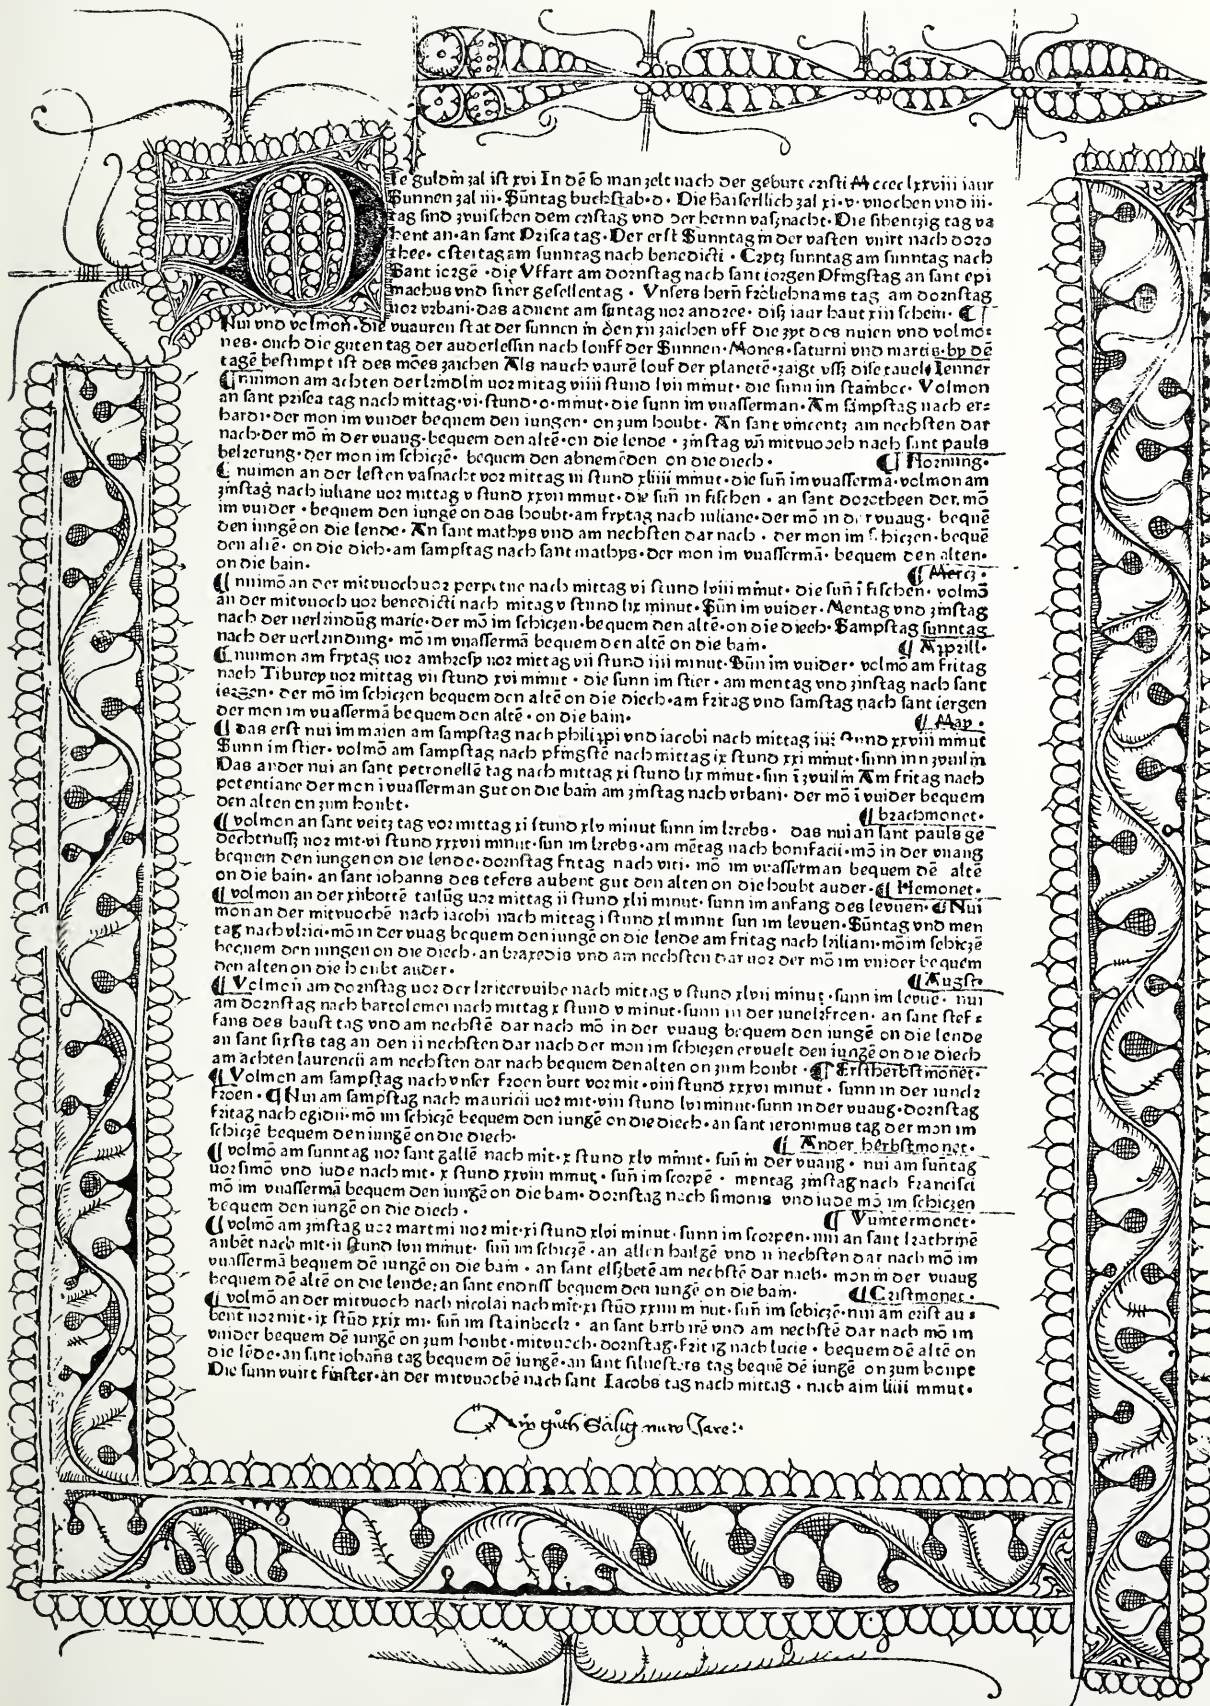 Die guldin zal ist xvi In dē so man zelt nach der geburt cristi Mcccc lxxviii iaur
Sunnen zal iii· Sūntag buchstab·d· Die kaiserllich zal xi·v·vuochen vnd iii·
tag sind zvuischen dem cristag vnd der herrn vasznacht·Die sibentzig tag va
hent an·an sant Prisca tag·Der erst Sunntag in der vasten vuirt nach doro
thee· ostertag am sunntag nach benedicti · Crytz sunntag am sunntag nach
Sant iorge ·die Vffart am dornstag nach sant iorgen Pfingstag an sant epi
machus vnd siner gesellentag · Vnsers hern̄ frolichnams tag am dornstag
uor vrbani·das aduent am suntag uor andree· disz iaur haut xiii schein· ¶
Nui vnd volmon·die vuauren stat der sunnen in den xii zaichen vff die zyt des nuien vnd volmo⸗
nes· ouch die guten tag der auderlessin nach louff der Sunnen·Mones·saturni vnd martis·by dē
tagē bestimpt ist des mōes zaichen Als nauch vaurē louf der planetē·zaigt vsz dise tauel·Ienner
¶nuimon am achten der kindlin uor mitag viiii stund lvii minut· die sunn im stainbock· Volmon
an sant prisca tag nach mittag·vi·stund·o·minut·die sunn im vuasserman·Am sampstag nach er⸗
hardi·der mon im vuider bequem den iungen· on zum houbt· An sant vincentz am nechsten dar
nach·der mō in der vuaug·bequem den altē·on die lende · zinstag vn̄ mitvuoch nach sant pauls
bekerung·der mon im schiczē· bequem den abnemēden on die diech· ¶ Hornung·
¶ nuimon an der lesten vasnacht vor mittag iii stund xliiii minut·die sun̄ im vuassermā·volmon am
zinstag nach iuliane uor mittag v stund xxvii minut·die sun̄ in fischen · an sant dorotheen der mō
im vuider · bequem den iungē on das houbt·am frytag nach iuliane·der mō in der vuaug· bequē
den iungē on die lende· An sant mathys vnd am nechsten dar nach · der mon im schiczen·bequē
den altē· on die diech·am sampstag nach sant mathys·der mon im vuassermā· bequem den alten·
on die bain· ¶ Mercz·
¶ nuimō an der mitvuoch uor perpetue nach mittag vi stund lviii minut· die sun̄ ī fischen· volmō
an der mitvuoch uor benedicti nach mitag v stund lix minut·Sūn im vuider·Mentag vnd zinstag
nach der uerkindūg marie·der mō im schiczen·bequem den altē·on die diech·Sampstag sunntag
nach der uerkindung· mō im vuassermā bequem den altē on die bain· ¶ Apprill·
¶ nuimon am frytag uor ambrosy uor mittag vii stund iiii minut·Sūn im vuider· volmō am fritag
nach Tiburcy uor mittag vii stund xvi minut · die sunn im stier·am mentag vnd zinstag nach sant
iergen· der mō im schiczen bequem den altē on die diech·am fritag vnd samstag nach sant iergen
der mon im vuassermā bequem den altē·on die bain· ¶ May·
¶ das erst nui im maien am sampstag nach philippi vnd iacobi nach mittag iiii stund xxviii minut
Sunn im stier· volmō am sampstag nach pfingstē nach mittag ix stund xxi minut·sunn inn zvuilin
Das ander nui an sant petronellē tag nach mittag xi stund lix minut·sun ī zvuilin Am fritag nach
potentiane der mon ī vuasserman gut on die bain am zinstag nach vrbani· der mō ī vuider bequem
den alten on zum houbt· ¶ brachmonet·
¶ volmon an sant veitz tag vor mittag xi stund xlv minut sunn im krebs· das nui an sant pauls ge
dechtnussz uor mit·vi stund xxxvii minut·sun im krebs·am mētag nach bonifacii·mō in der vuaug
bequem den iungen on die lende·dornstag fritag nach viti· mō im vuasserman bequem dē altē
on die bain·an sant iohanns des tefers aubent gut den alten on die houbt auder·¶ Hemonet·
¶ volmon an der xiibottē tailūg uor mittag ii stund xlii minut·sunn im anfang des levuen·¶Nui
mon an der mitvuochē nach iacobi nach mittag i stund xl minut sun im levuen·Sūntag vnd men
tag nach vlrici·mō in der vuag bequem den iungē on die lende am fritag nach kiliani·mō im schiczē
bequem den iungen on die diech·an braxedis vnd am nechsten dar uor der mō im vuider bequem
den alten on die houbt auder· ¶August·
¶ Volmon am dornstag uor der kritervuihe nach mittag v stund xlvii minut·sunn im levuē· nui
am dornstag nach bartolemei nach mittag x stund v minut·sunn in der iunckfroen·an sant stef⸗
fans des baust tag vnd am nechstē dar nach mō in der vuaug bequem den iungē on die lende
an sant sixsts tag an den ii nechsten dar nach der mon im schiczen ervuelt den iungē on die diech
am achten laurencii am nechsten dar nach bequem den alten on zum houbt·¶ Ersthërbstmonet·
¶ Volmon am sampstag nach vnser froen burt vor mit·viii stund xxxvi minut· sunn in der iunck⸗
froen·¶Nui am sampstag nach mauricii uor mit·viii stund lvi minut·sunn in der vuaug·dornstag
fritag nach egidii·mō im schiczē bequem den iungē on die diech·an sant ieronimus tag der mon im
schiczē bequem den iungē on die diech· ¶ Ander herbstmonat·
¶ volmō am sunntag uor sant gallē nach mit·x stund xlv minut· sun̄ in der vuaug· nui am sun̄tag
uor simō vnd iude nach mit· x stund xxviii minut· sun̄ im scorpē· mentag zinstag nach francisci
mō im vuassermā bequem den iungē on die bain·dornstag nach simonis vnd iude mō im schiczen
bequem den iungē on die diech· ¶ Vuintermonet·
¶ volmō am zinstag uor martini uor mit·xi stund xlvi minut·sunn im scorpen·nui an sant kathrinē
aubēt nach mit·ii stund lvii minut· sun̄ im schiczē·an allen hailgē vnd ii nechsten dar nach mō im
vuassermā bequem dē iungē on die bain · an sant elszbetē am nechstē dar nach· mon in der vuaug
bequem dē altē on die lende;an sant endriss bequem den iungē on die bain· ¶Cristmonet·
¶ volmō an der mitvuoch nach nicolai nach mit·xi stūd xxiiii minut·sun̄ im schiczē·nui am crist au⸗
bent uor mit·ix stūd xxix mi· sun̄ im stainbock · an sant barbarē vnd am nechstē dar nach mō im
vuider bequem dē iungē on zum houbt·mitvuoch·dornstag·fritag nach lucie· bequem dē altē on
die lēde·an sant iohan̄s tag bequem dē iungē·an sant siluesters tag bequē dē iungē on zum houpt
Die sunn vuirt finster·an der mitvuochē nach sant Iacobs tag nach mittag·nach aim liiii minut·
Ain gůth Sälig nuw Jare:·